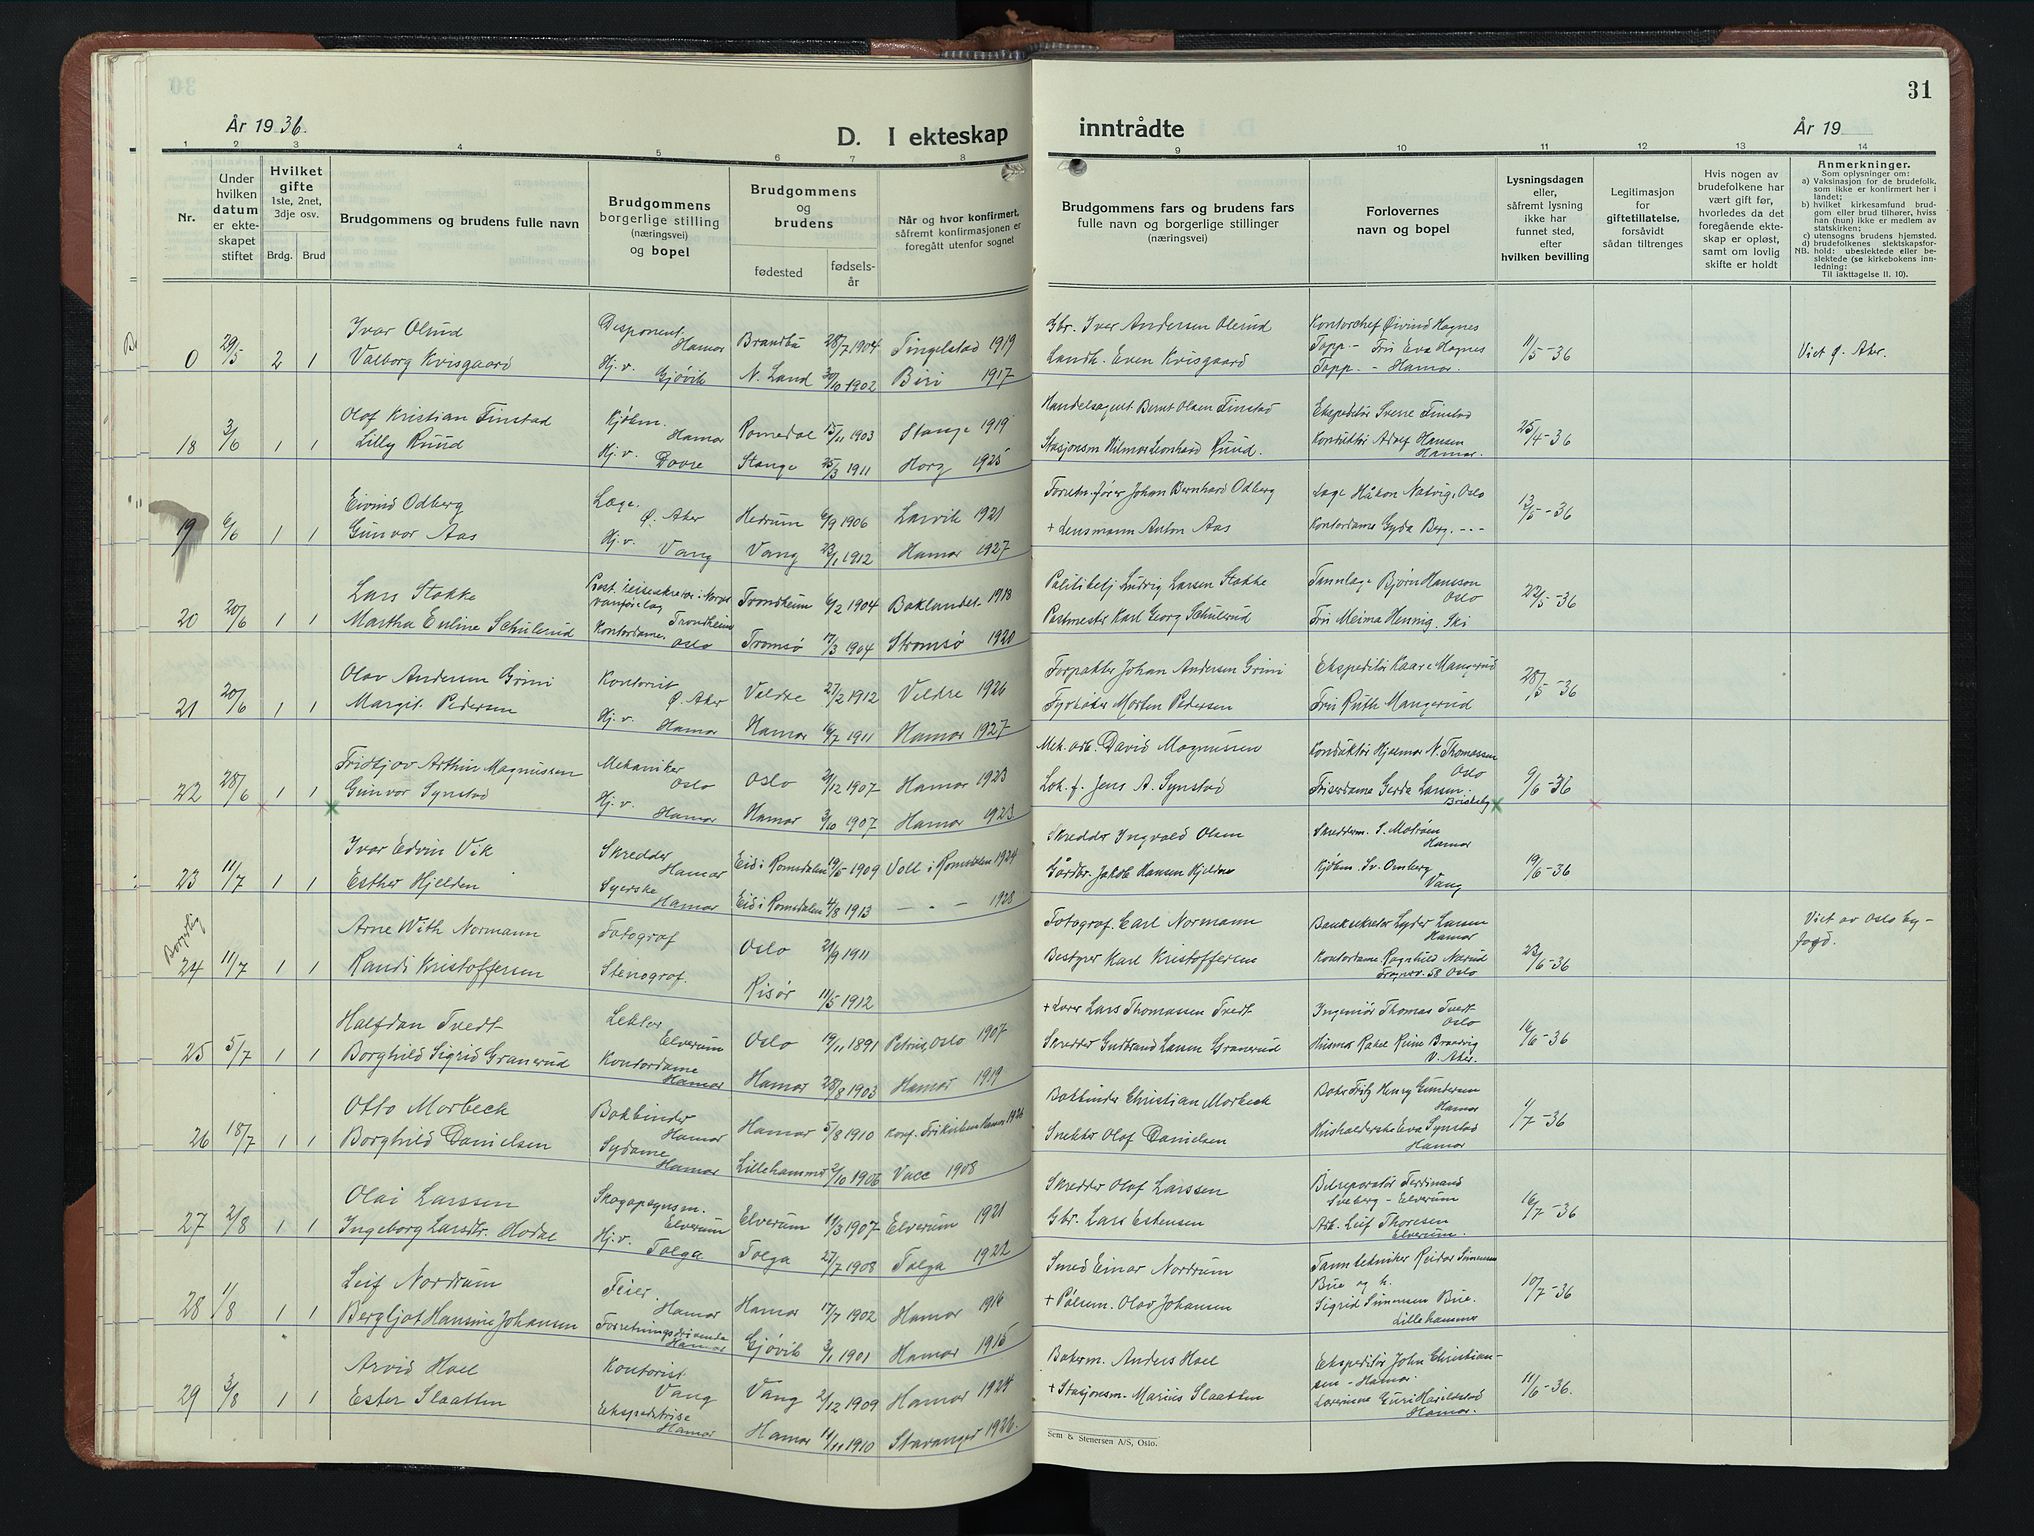 År 1936.
D. I ekteskap
inntrådte
År 19
31
1 2 3 4 5 6 7 8 9 10 11 12 13 14
Nr.
Under hvilken datum er ekteskapet stiftet
Hvilket gifte 1ste, 2net, 3dje osv.
Brdg. Brud
Brudgommens og brudens fulle navn
Brudgommens borgerlige stilling (næringsvei) og bopel
Brudgommens og brudens
fødested
fødsels-år
Når og hvor konfirmert, såfremt konfirmasjonen er foregått utenfor sognet
Brudgommens fars og brudens fars fulle navn og borgerlige stillinger (næringsvei)
Forlovernes navn og bopel
Lysningsdagen eller, såfremt lysning ikke har funnet sted, efter hvilken bevilling
Legitimasjon for giftetillatelse, forsåvidt sådan tiltrenges
Hvis nogen av brudefolkene har vært gift før, hvorledes da det foregående ekteskap er opløst, samt om lovlig skifte er holdt
Anmerkninger.
Som oplysninger om:
a) Vaksinasjon for de brudefolk, som ikke er konfirmert her i landet;
b) hvilket kirkesamfund brudgom eller brud tilhører, hvis han (hun) ikke er medlem av statskirken;
c) utensogns brudens hjemsted.
d) brudefolkenes slektskapsforhold: ubeslektede eller beslektede (se kirkebokens innledning:
NB. Til iakttagelse II. 10).
0 29/5 2 1 Ivar Olerud Disponent. Hamar Brandbu 28/7 1904 Tingelstad 1919 Gbr. Iver Andersen Olerud Kontorchef Øivind Hagnes
Valborg Kvisgaard Hj. v. Gjøvik N. Land 30/10 1902 Biri 1917 Landh. Even Kvisgaard Topp. - Fru Eva Hagnes Topp. - Hamar. 11/5-36 Viet Ø. Aker.
18 3/6 1 1 Olof Kristian Finstad Kjøbm. Hamar Romedal 15/11 1903 Stange 1919 Handelsagent Bernt Olsen Finstad Ekspeditør Sverre Finstad
Lilly Ruud Hj. v. Dovre Stange 25/3 1911 Horg 1925 Stasjonsm Hilmar Leonhard Ruud. Konduktør Adolf Hansen Hamar. 25/4-36
19 6/6 1 1 Eivind Odberg Læge. Ø. Aker Hedrum 6/9 1906 Larvik 1921 Forretn.fører Johan Bernhard Odberg Læge Håkon Natvig, Oslo
Gunvor Aas Hj. v. Vang Vang 23/1 1912 Hamar 1927 + Lensmann Anton Aas Kontordame Gyda Berg. - - - 13/5-36
20 20/6 1 1 Lars Stokke Trondheim Trondheim 6/2 1904 Baklandet. 1918 Politibetj Ludvig Larsen Stokke Tannlæge Bjørn Hansson Oslo
Martha Euline Schulerud Kontordame. Oslo Tromsø 17/3 1904 Stromsø 1920 Postmester Karl Georg Schulerud Fru Meina Hennig. Ski 22/5-36
21 20/6 1 1 Olav Andersen Grini Kontorist Ø. Aker Veldre 27/2 1912 Veldre 1926 Forpakter Johan Andersen Grini Ekspeditør Kaare Mangerud
Margit Pedersen Hj. v. Hamar Hamar 16/7 1911 Hamar 1927 Fyrbøter Morten Pedersen Fru Ruth Mangerud 28/5-36
22 28/6 1 1 Fridtjov Arthur Magnussen Mekaniker Oslo Oslo 2/12 1907 Hamar 1923 Mek. arb. David Magnussen Konduktør Hjalmar N. Thomassen Oslo
Gunvor Synstad Hj. v. Hamar Hamar 3/10 1907 Hamar 1923 Lok. f. Jens A. Synstad Friserdame Gerda Larsen. Briskeby 9/6-36
23 11/7 1 1 Ivar Edvin Vik Skredder Hamar Eid i Romsdalen 19/5 1909 Voll i Romsdalen 1924 Skredder Ingvald Olsen Skredderm. S. Moløen Hamar
Esther Hjelden Syerske Hamar Eid i Romsdalen 4/8 1913 - " - 1928 Gårdbr. Jakob Hansen Hjelden Kjøbm. Sv. Ornberg Vang 19/6-36
Borgerlig
24 11/7 1 1 Arne With Normann Fotograf Oslo 21/9 1911 Fotograf. Carl Normann Banksekretær Lyder Larsen Hamar Viet av Oslo by-fogd.
Randi Kristoffersen Stenograf. Risør 11/5 1912 Bestyrer Karl Kristoffersen Kontordame Ragnhild Nærud Frognerv. 58 Oslo 23/6-36
25 5/7 1 1 Halfdan Tvedt Lektor Elverum Oslo 19/11 1891 Petrus, Oslo 1907 + Lærer Lars Thomassen Tvedt Ingeniør Thomas Tvedt Oslo
Borghild Sigrid Granerud Kontordame Hamar Hamar 28/8 1903 Hamar 1919 Skredder Gudbrand Larsen Granerud Husmor Rakel Ruine Braadvig V. Aker. 16/6-36
26 18/7 1 1 Otto Morbeck Bokbinder Hamar Hamar 5/8 1910 Konf. Frikirken Hamar 1926 Bokbinder Christian Morbeck Baker Fritz Henry Gundersen Hamar
Borghild Danielsen Sydame Hamar Lillehammer 2/10 1906 Vacc 1908 Snekker Olof Danielsen Husholderske Eva Synstad Hamar 1/7-36
27 2/8 1 1 Olai Larssen Skogopsynsm. Elverum Elverum 11/3 1907 Elverum 1921 Skredder Olof Larssen Bilreparatør Ferdinand Sveberg - Elverum
Ingeborg Larsdtr. Hodal Hj. v. Tolga Tolga 27/7 1908 Tolga 1922 Gbr. Lars Estensen Arb. Leif Thoresen Elverum. 16/7-36
28 1/8 1 1 Leif Nordrum Feier. Hamar Hamar 17/7 1902 Hamar 1916 Smed Einar Nordrum Tanntekniker Reidar Simensen Bue og h.
Bergljot Hansine Johansen Forretningsdrivende Hamar Gjøvik 3/1 1901 Hamar 1915 + Pølsem. Olav Johansen Sigrid Simensen Bue. Lillehammer 10/7-36
29 3/8 1 1 Arvid Hoel Kontorist. Vang Vang 2/12 1909 Hamar 1924 Bakerm. Anders Hoel Ekspeditør John Christian-sen - Hamar.
Ester Slaatten Ekspeditrise Hamar Hamar 14/11 1910 Stavanger 1926. + Stasjonsm. Marius Slaatten Lærerinne Guri Haraldstad Hamar. 11/6-36.
Sem & Stenersen A/S, Oslo.